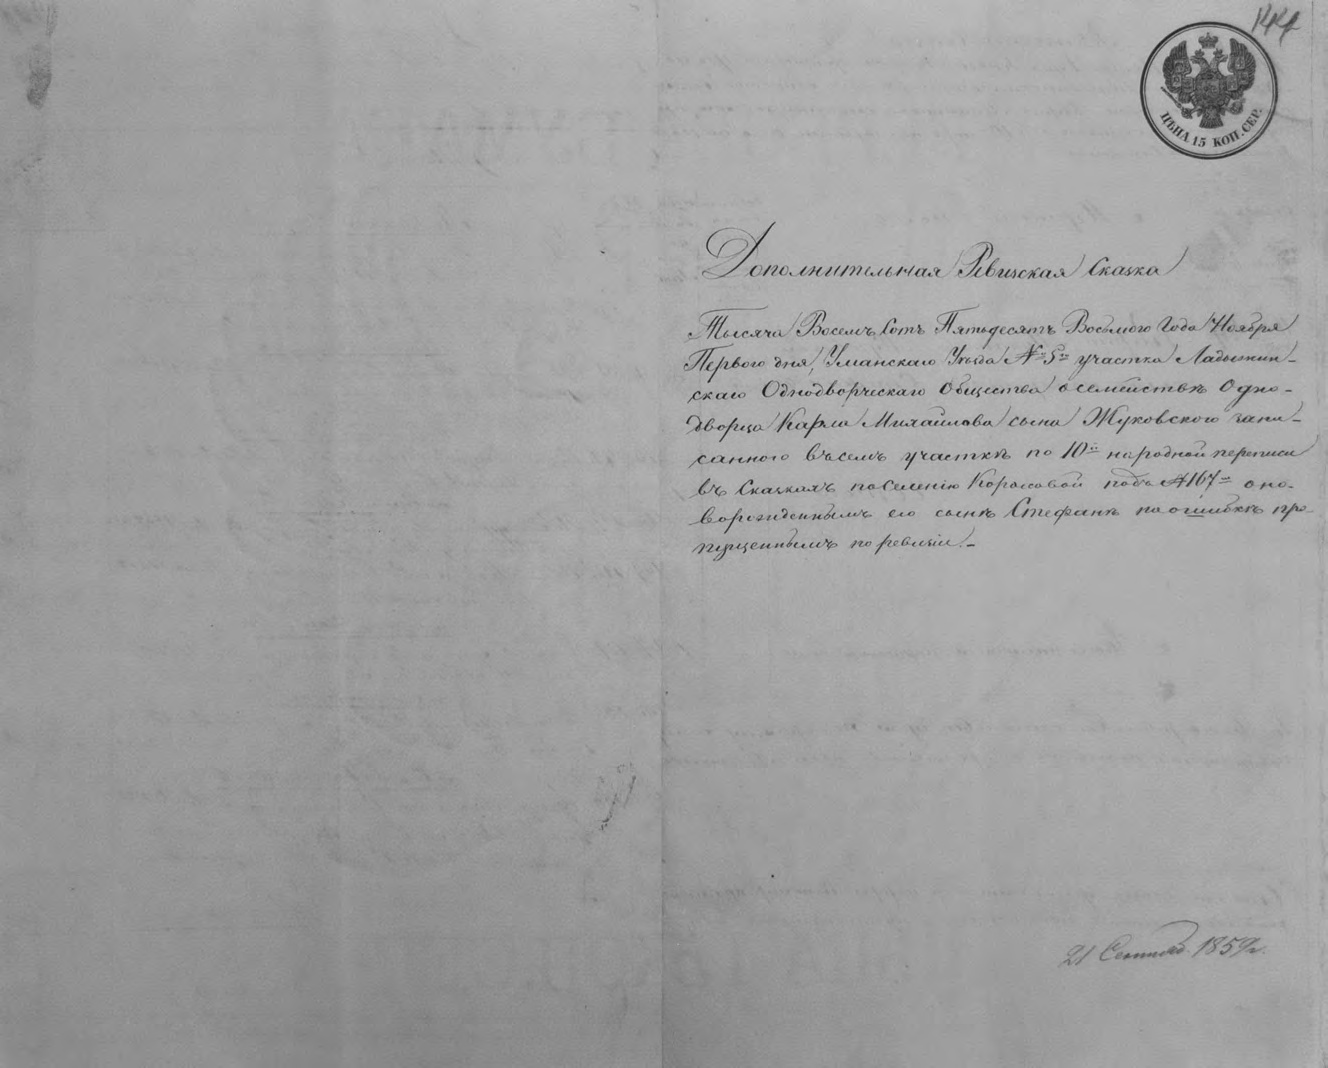 144
ЦѢНА 15 КОП. СЕР.
Дополнительная Ревизская Сказка
Тысяча Восемъ Сотъ Пятьдесятъ Восьмого Года Ноября
Перваго дня, Уманскаго Уѣзда № 5го участка Ладыжин-
скаго Однодворческаго Общества о семействѣ Одно-
дворца Карла Михайлова сына Жуковского запи-
санного въ семъ участкѣ по 10й народной переписи
въ Сказкахъ по селенію под № 167м о но-
ворожденнымъ его сынѣ Стефанѣ по ошибкѣ про-
пущеннымъ по ревизіи.-
21 1859г.